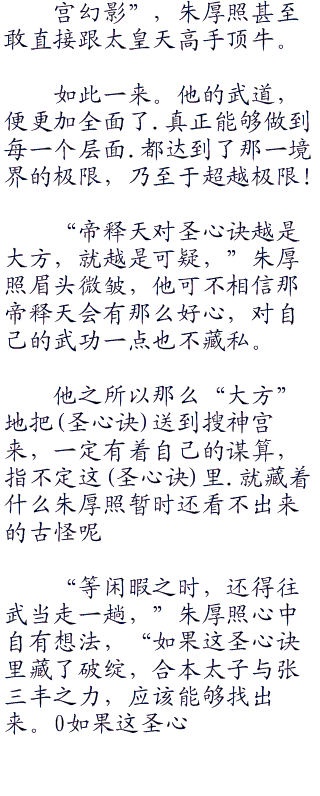 宫幻影”，朱厚照甚至
敢直接跟太皇天高手顶牛。
如此一来。他的武道，
便更加全面了.真正能够做到
每一个层面.都达到了那一境
界的极限，乃至于超越极限!
“帝释天对圣心诀越是
大方，就越是可疑，”朱厚
照眉头微皱，他可不相信那
帝释天会有那么好心，对自
己的武功一点也不藏私。
他之所以那么“大方”
地把(圣心诀)送到搜神宫
来，一定有着自己的谋算，
指不定这(圣心诀)里.就藏着
什么朱厚照暂时还看不出来
的古怪呢
“等闲暇之时，还得往
武当走一趟，”朱厚照心中
自有想法，“如果这圣心诀
里藏了破绽，合本太子与张
三丰之力，应该能够找出
来。0如果这圣心